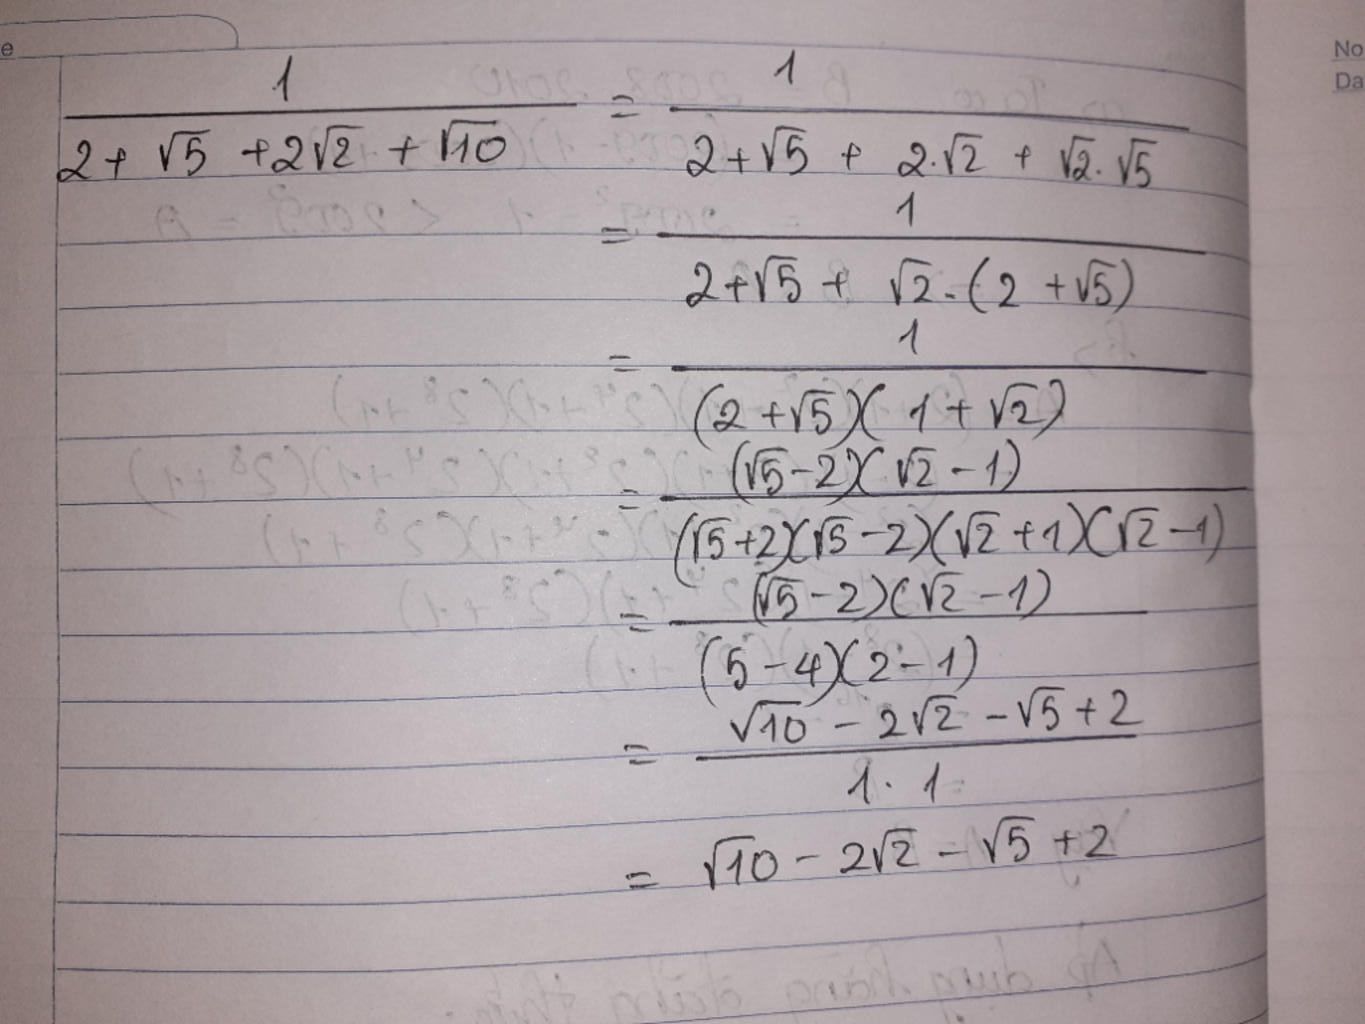 e
No
Da
1/(2 + √5 + 2√2 + √10) = 1/(2 + √5 + 2.√2 + √2.√5)
= 1/(2 + √5 + √2.(2 + √5))
= 1/((2 + √5)(1 + √2))
= (√5 - 2)(√2 - 1)/((√5 + 2)(√5 - 2)(√2 + 1)(√2 - 1))
= (√5 - 2)(√2 - 1)/((5 - 4)(2 - 1))
= (√10 - 2√2 - √5 + 2)/(1 . 1)
= √10 - 2√2 - √5 + 2